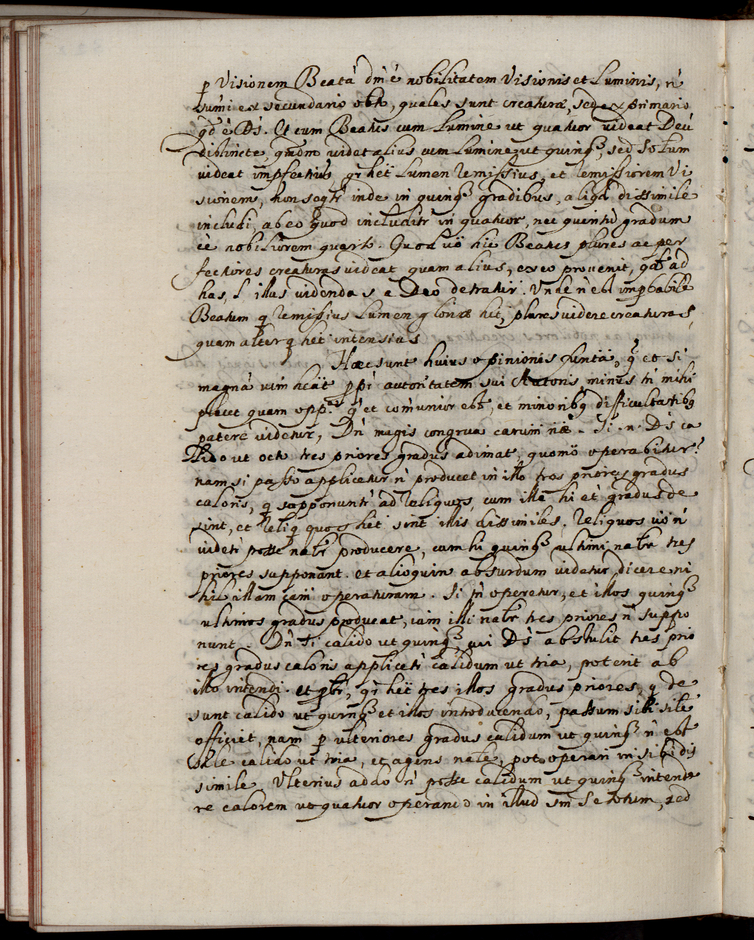 p Visionem Beatā dñ é nobilitatem Visionis et Luminis, ñ
sumi ex secundario obto, quales sunt creaturæ, sed ex primario
qd ē Ds. Ut cum Beatus cum Lumine ut quatuor videat Deū
distincte, quēdm videt alius cum Lumine ut quinqȝ, sed solum
videat impfectius qr het Lumen remissius, et remissiorem Vi
sionem, non seqtr inde in quinqȝ gradibus, aliqd dissimile
includi, ab eo quod includitr in quatuor, nec quintū gradum
ēe nobiliorem quarto. Quod uō hic Beatus plures ac per
fectiores creaturas videat quam alius, ex eo provenit, qd ad
has, l illas videndas a Deo detratur. Unde ñ est improbabile
Beatum q remissius Lumen gloriæ het, plures videre creaturas,
quam alter q het intensius
Hæc sunt huius opinionis funta, q et si
magnā vim hēat ppr autoritatem sui Autoris minus tñ mihi
placet quam opp.ta qr et comunior est, et minoribȝ difficultatibȝ
patere videtur, Dñ magis congrua earum næ. Si .n. Ds ca
lido ut octo tres priores gradus adimat, quomō operabitur?
nam si passo applicetur ñ producet in illo tres priores gradus
caloris, q supponuntr ad reliquos, cum ille hi et gradus de
sint, et reliq quos het sint illis dissimiles. Reliquos uō ñ
videtr posse natr producere, cum hi quinqȝ ultimi natr tres
priores supponant. et alioquin absurdum videtur dicere ni
hil illam cām operaturam. Si tñ operetur, et illos quinqȝ
ultimos gradus producat, iam illi natr tres priores ñ suppo
nunt. Dñ si calido ut quinqȝ cui Ds abstulit tres prio
res gradus caloris applicetr calidum ut tria, poterit ab
illo intendi. et pbtr, qr het tres illos gradus priores, q de
sunt calido ut quinqȝ et illos introducendo, passum sibi sile
officiet, nam p ulteriores gradus calidum ut quinqȝ ñ est
sile calido ut tria, et agens nale, pot operari in sibi dis
simile. Ulterius addo ñ posse calidum ut quinqȝ intende
re calorem ut quatuor operando in illud sm se totum, sed